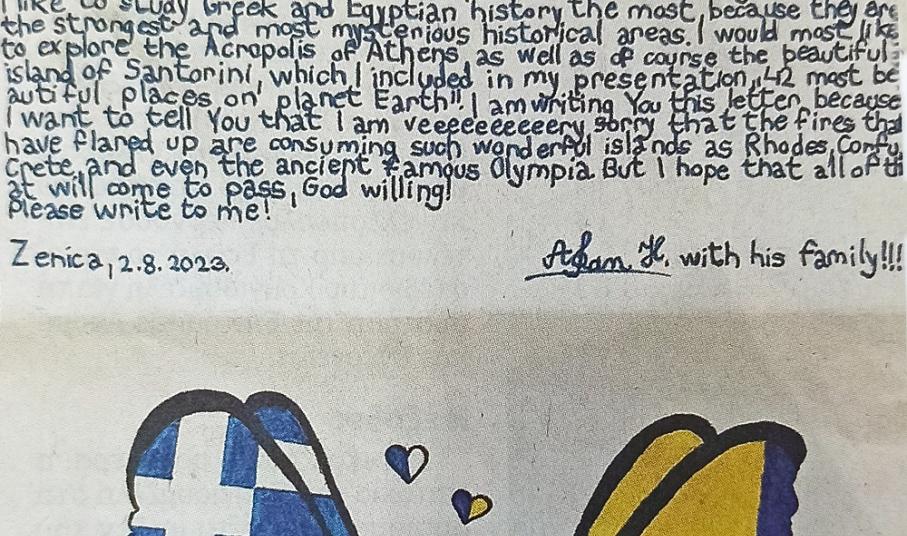 I like to study Greek and Egyptian history the most, because they are
the strongest and most mysterious historical areas. I would most like
to explore the Acropolis of Athens as well as of course the beautiful
island of Santorini, which I included in my presentation „42 most be
autiful places on planet Earth". I am writing You this letter, because
I want to tell You that I am veeeeeeeeeery sorry that the fires that
have flared up are consuming such wonderful islands as Rhodes, Corfu,
Crete, and even the ancient famous Olympia. But I hope that all of th
at will come to pass, God willing!
Please write to me!
Zenica, 2.8.2023.
H. with his family!!!